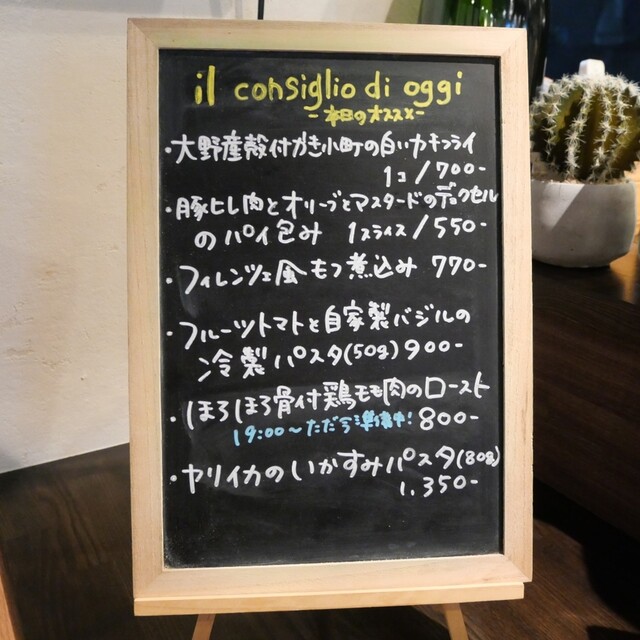 il consiglio di oggi
-本日のオススメ-
・大野産殻付かき小町の白いカキフライ
1コ/700-
・豚ヒレ肉とオリーブとマスタードのデュクセル
のパイ包み 1スライス/550-
・フィレンツェ風もつ煮込み 770-
・フルーツトマトと自家製バジルの
冷製パスタ(50g)900-
・ほろほろ骨付鶏モモ肉のロースト
19:00〜ただ今準備中! 800-
・ヤリイカのいかすみパスタ(80g)
1,350-